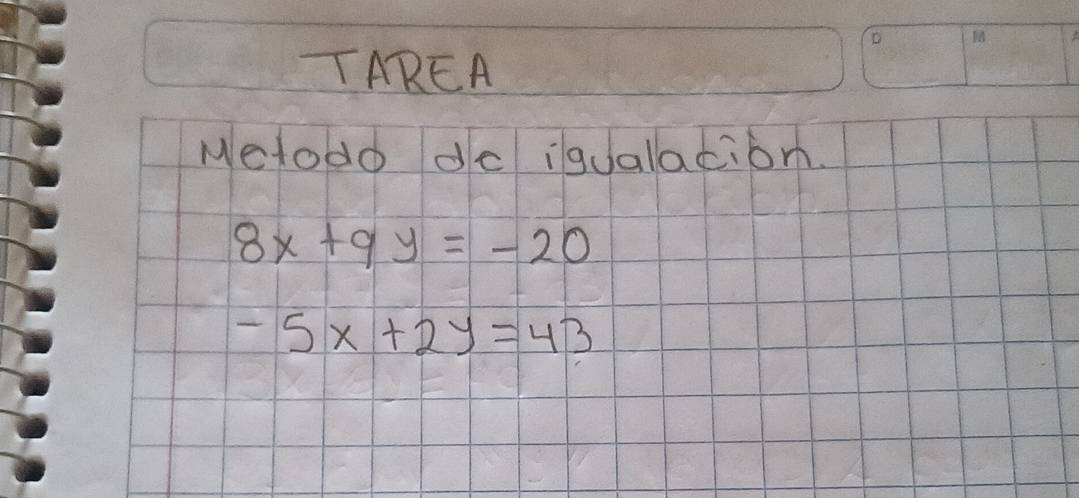 D M A
TAREA
Metodo de igualación.
8x + 9y = -20
-5x + 2y = 43